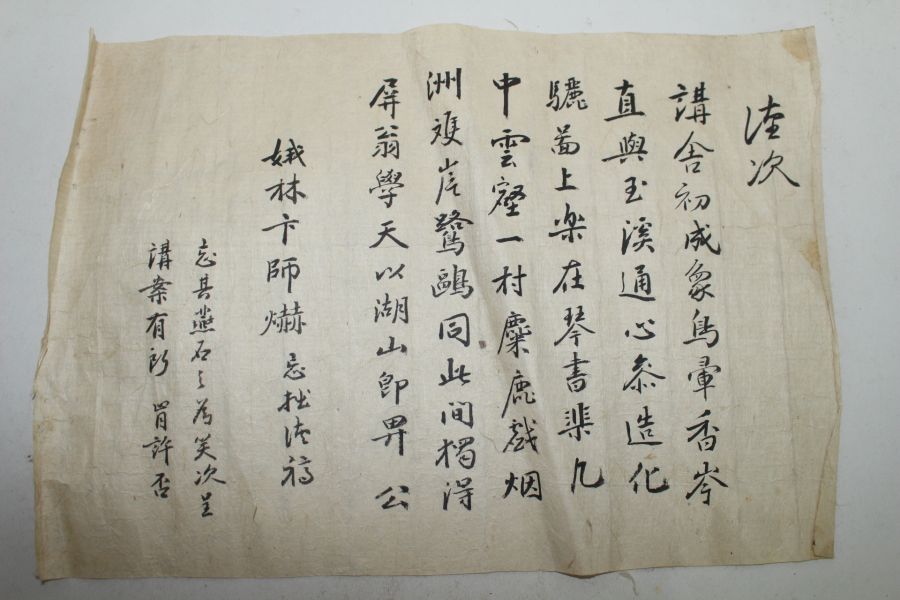 謹次
講舍初成象鳥翬香岑
直與玉溪通心參造化
驪啚上樂在琴書棐几
中雲壑一村麋鹿戲烟
洲複岸鷺鷗同此间獨得
屏翁學天以湖山卽畀公
娥林卞師爀忘拙謹稿
忘其燕石之爲笑次呈
講案有所肯許否